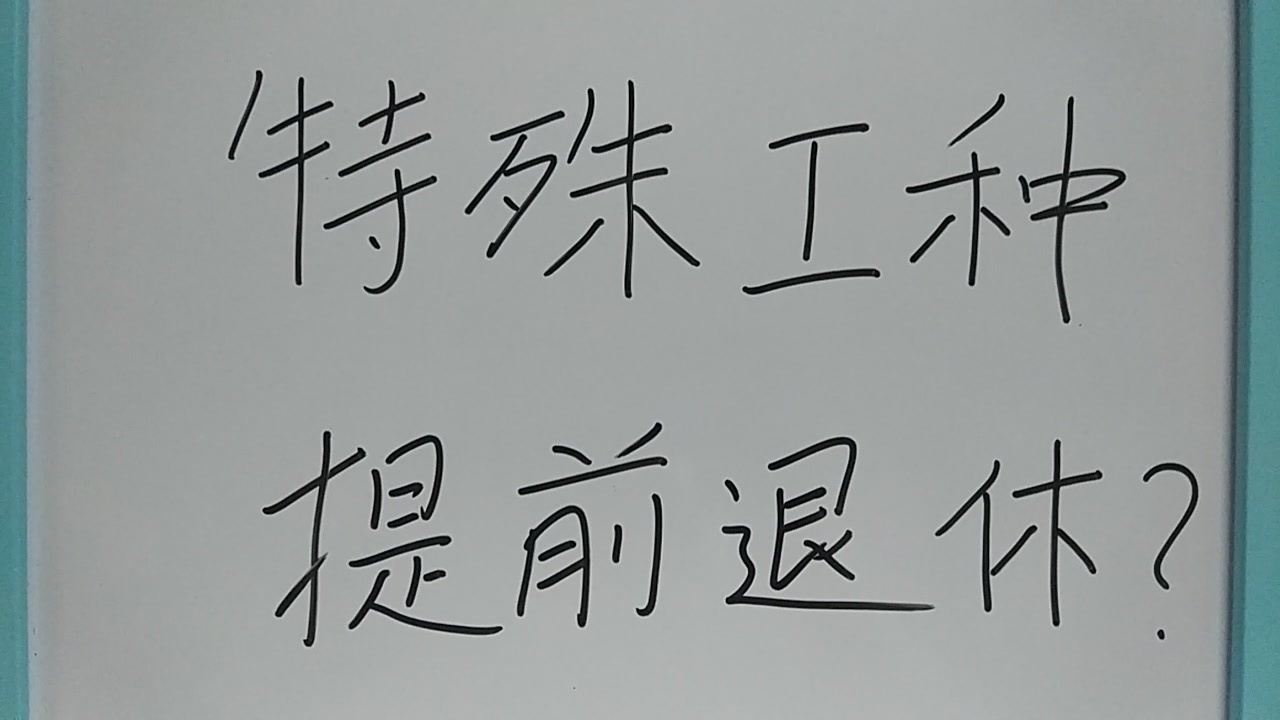 特殊工种
提前退休?